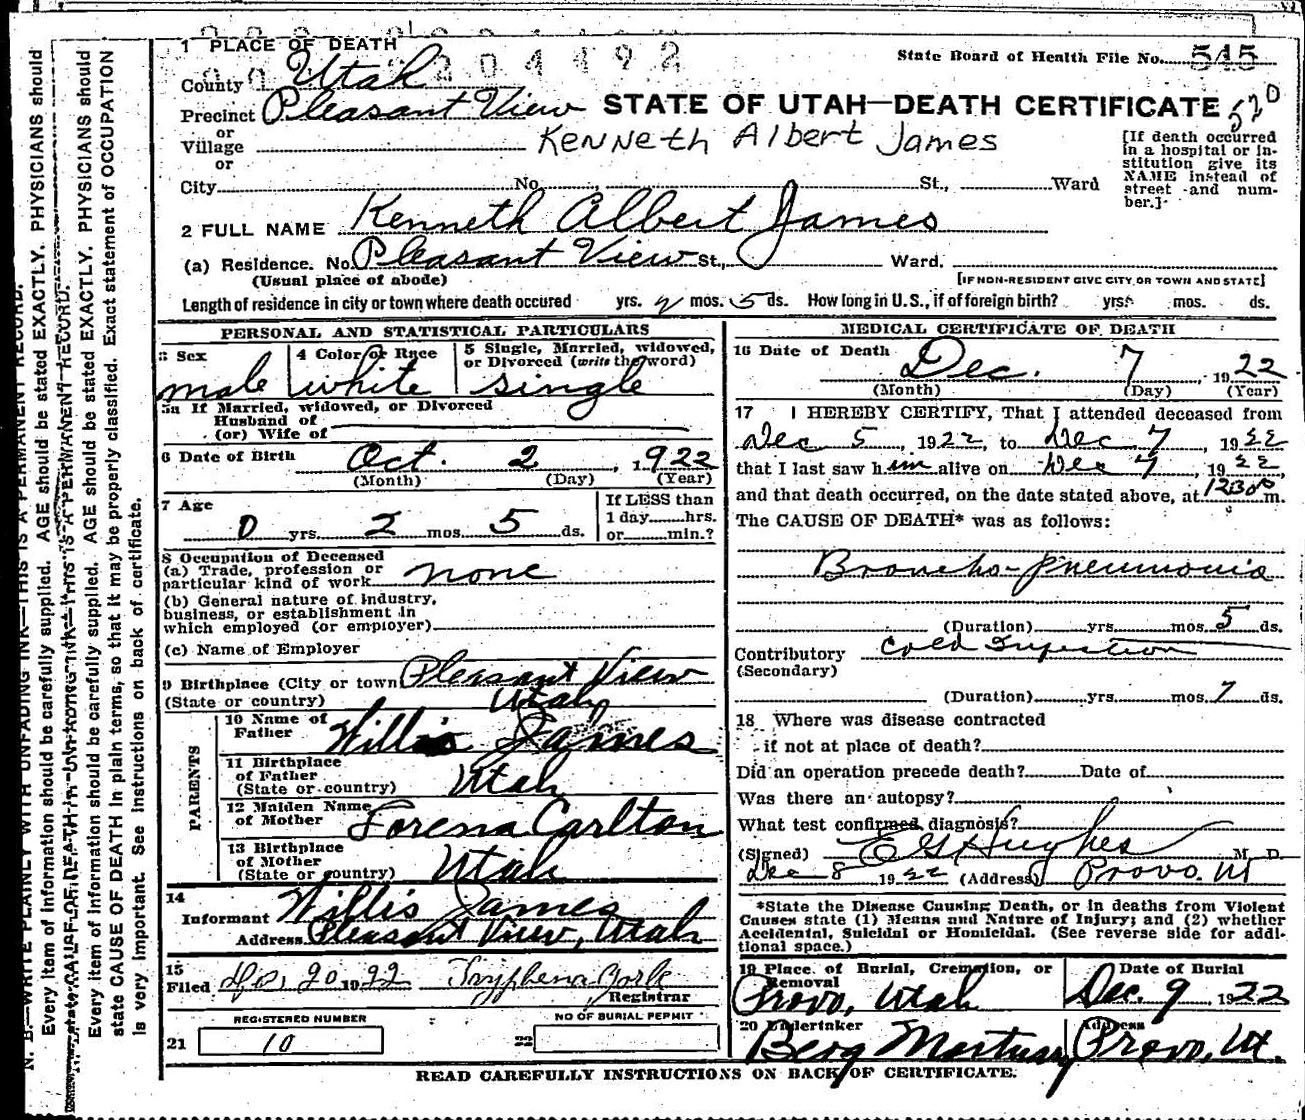 1 PLACE OF DEATH
204492
State Board of Health File No. 545
County Utah
Precinct Pleasant View
STATE OF UTAH—DEATH CERTIFICATE 520
or
Village
Kenneth Albert James
or
City No. St., Ward
[If death occurred in a hospital or institution give its NAME instead of street and number.]
2 FULL NAME Kenneth Albert James
(a) Residence. No. Pleasant View St., Ward.
(Usual place of abode)
[IF NON-RESIDENT GIVE CITY OR TOWN AND STATE]
Length of residence in city or town where death occured yrs. 2 mos. 5 ds. How long in U.S., if of foreign birth? yrs. mos. ds.
PERSONAL AND STATISTICAL PARTICULARS
3 Sex
male
4 Color or Race
white
5 Single, Married, widowed, or Divorced (write the word)
single
5a If Married, widowed, or Divorced
Husband of
(or) Wife of
6 Date of Birth Oct. 2, 1922
(Month) (Day) (Year)
7 Age
0 yrs. 2 mos. 5 ds.
If LESS than
1 day hrs.
or min.?
8 Occupation of Deceased
(a) Trade, profession or
particular kind of work none
(b) General nature of Industry,
business, or establishment in
which employed (or employer)
(c) Name of Employer
9 Birthplace (City or town) Pleasant View
(State or country) Utah
PARENTS
10 Name of Father Willis James
11 Birthplace
of Father
(State or country) Utah
12 Maiden Name
of Mother Lorena Carlton
13 Birthplace
of Mother
(State or country) Utah
14
Informant Willis James
Address Pleasant View, Utah
15
Filed 20 1922 Tryphena York
Registrar
REGISTERED NUMBER
21 10
NO OF BURIAL PERMIT
22
MEDICAL CERTIFICATE OF DEATH
16 Date of Death Dec. 7, 1922
(Month) (Day) (Year)
17 I HEREBY CERTIFY, That I attended deceased from
Dec 5, 1922, to Dec 7, 1922
that I last saw him alive on Dec 7, 1922
and that death occurred, on the date stated above, at m.
The CAUSE OF DEATH* was as follows:
Broncho-pneumonia
(Duration) yrs. mos. 5 ds.
Contributory Cold Infection
(Secondary)
(Duration) yrs. mos. 7 ds.
18 Where was disease contracted
if not at place of death?
Did an operation precede death? Date of
Was there an autopsy?
What test confirmed diagnosis?
(Signed) E G Hughes M. D.
Dec 8 1922 (Address) Provo. Ut
*State the Disease Causing Death, or in deaths from Violent
Causes state (1) Means and Nature of Injury; and (2) whether
Accidental, Suicidal or Homicidal. (See reverse side for addi-
tional space.)
19 Place of Burial, Cremation, or Removal
Provo, Utah
Date of Burial
Dec. 9 1922
20 Undertaker
Berg Mortuary
Address
Provo, Ut.
READ CAREFULLY INSTRUCTIONS ON BACK OF CERTIFICATE.
N. B.—WRITE PLAINLY WITH UNFADING INK—THIS IS A PERMANENT RECORD.
Every item of information should be carefully supplied. AGE should be stated EXACTLY. PHYSICIANS should
Every item of information should be carefully supplied. AGE should be stated EXACTLY. PHYSICIANS should
state CAUSE OF DEATH in plain terms, so that it may be properly classified. Exact statement of OCCUPATION
is very important. See instructions on back of certificate.